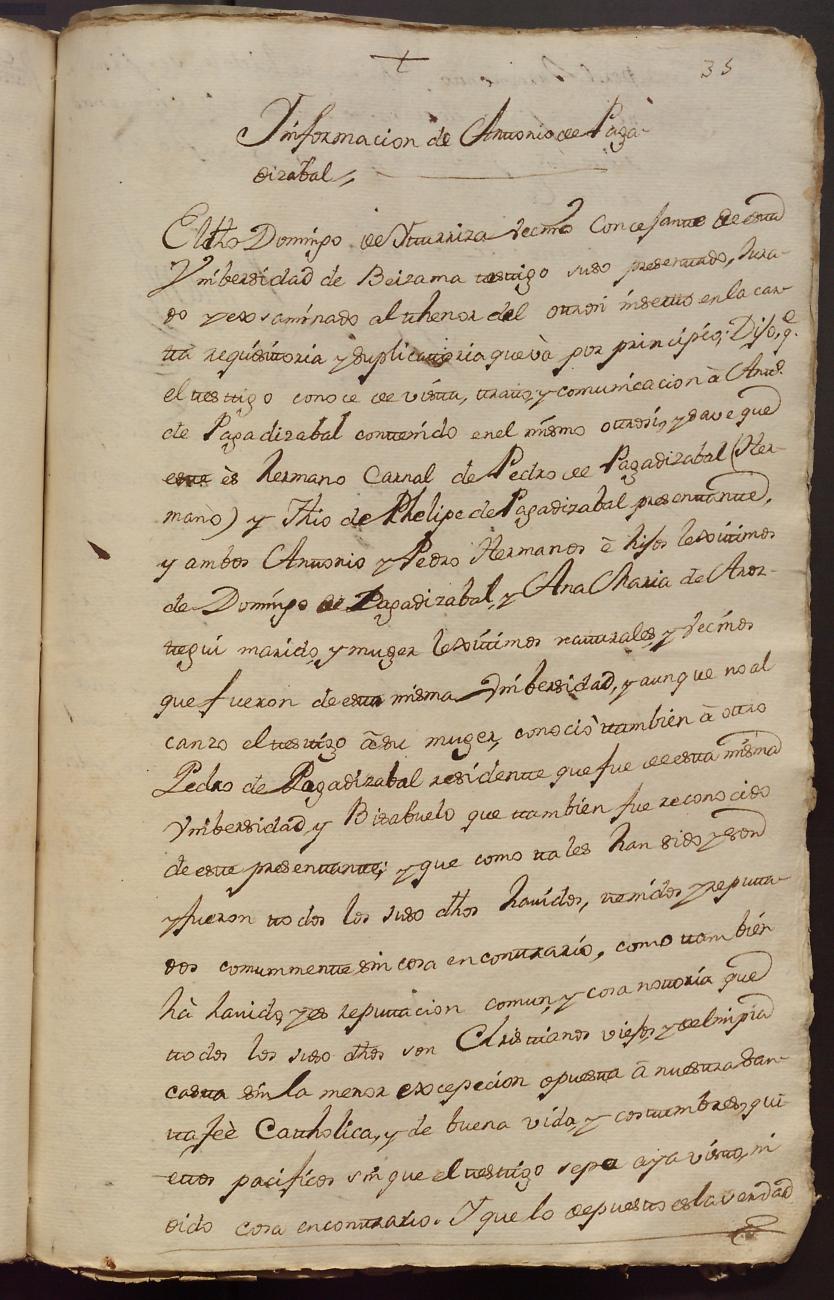 35
Informacion de Antonio de Paga-
dizabal,
El dho Domingo de Yturriza vecino Concejante de esta
Ymbersidad de Beizama testigo suso presentado, Jura-
do y exsaminado al thenor del otrosi inserto en la car-
ta requisitoria y suplicatoria que và por principio; Dijo, q.e
el testigo conoce de vista, trato, y comunicacion à Ant.o
de Pagadizabal contenido en el mismo otrosi, y save que
este ès hermano Carnal de Pedro de Pagadizabal (Her-
mano) y Thio de Phelipe de Pagadizabal presentante,
y ambos Antonio y Pedro Hermanos è hijos lexitimos
de Domingo de Pagadizabal, y Ana Maria de Aroz-
tegui marido, y muger lexitimos naturales, y vecinos
que fueron de esta misma Ymbersidad, y aunque no al
canzo el testigo à su muger, conociò tambien à otro
Pedro de Pagadizabal residente que fue de esta misma
Ymbersidad, y Bisabuelo que tambien fue reconocido
de este presentante; y que como tales han sido y son
y fueron todos los suso dhos havidos, tenidos y reputa-
dos comunmente sin cosa en contrario, como tambien
hà havido, y es reputacion comun, y cosa notoria que
todos los suso dhos son Christianos viejos, y de limpia
casta sin la menor excepecion opuesta à nuestra San-
ta feè Catholica, y de buena vida, y costumbres, qui
etos pacificos sin que el testigo sepa aya visto, ni
oido cosa en contrario. Y que lo depuesto es la verdad